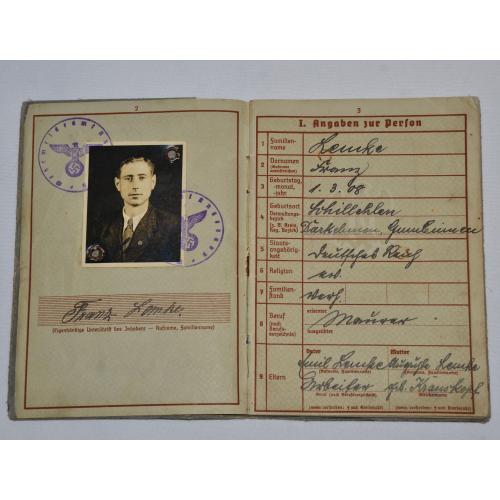 2
Franz Lemke
(Eigenhändige Unterschrift des Inhabers — Rufname, Familienname)
3
I. Angaben zur Person
1 Familien-name Lemke
2 Vornamen (Rufname unterstreichen) Franz
3 Geburtstag, -monat, -jahr 1.3.08
4 Geburtsort Schillehlen
Verwaltungsbezirk (z. B. Kreis, Reg. Bezirk) Darkehmen, Gumbinnen
5 Staats-angehörigkeit Deutsches Reich
6 Religion ev.
7 Familien-stand verh.
8 Beruf (nach Berufsverzeichnis) erlernter Maurer
ausgeübter
9 Eltern
Vater Mutter
Emil Lemke Auguste Lemke
(Rufname, Familienname)
Arbeiter geb. Krauskopf
Beruf (nach Berufsverzeichnis) Mädchenname
(wenn verstorben: † und Sterbejahr) (wenn verstorben: † und Sterbejahr)